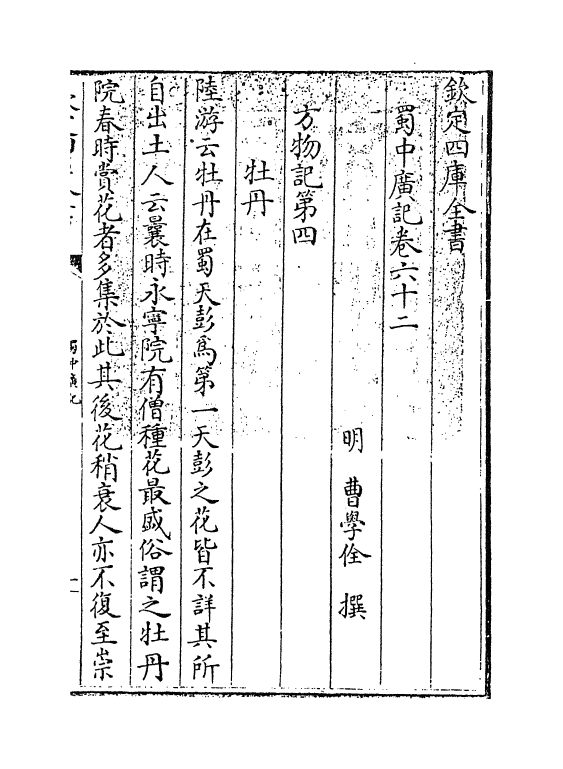 欽定四庫全書
蜀中廣記卷六十二
明 曹學佺 撰
方物記第四
牡丹
陸游云牡丹在蜀天彭為第一天彭之花皆不詳其所
自出土人云曩時永寧院有僧種花最盛俗謂之牡丹
院春時賞花者多集於此其後花稍衰人亦不復至崇
蜀中廣記